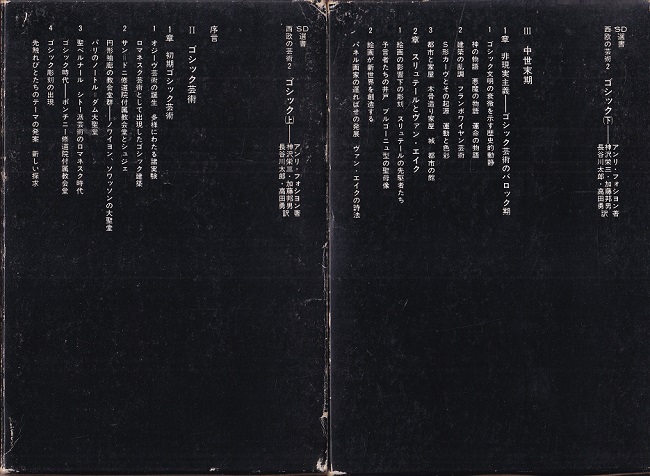 SD選書
西欧の芸術2 ゴシック(下)
アンリ・フォション著
神沢栄三・加藤邦男
長谷川太郎・高田勇訳
III 中世末期
1章 非現実主義——ゴシック芸術のバロック期
1 ゴシック文明の衰微を示す歴史的動静
神の物語 悪魔の物語 運命の物語
2 建築の乱調 フランボワイヤン芸術
S形カーヴとその起源 運動と色彩
3 都市と家屋 木骨造り家屋 城 都市の館
2章 スリュテールとヴァン・エイク
1 絵画の影響下の彫刻 スリュテールの先駆者たち
予言者たちの井戸 ブルゴーニュ型の聖母像
2 絵画が新世界を創造する
パネル画家の遅ればせの発展 ヴァン・エイクの詩法
SD選書
西欧の芸術2 ゴシック(上)
アンリ・フォション著
神沢栄三・加藤邦男
長谷川太郎・高田勇訳
序言
II ゴシック芸術
1章 初期ゴシック芸術
1 オジーヴ芸術の誕生 多様にわたる諸実験
ロマネスク芸術として出現したゴシック建築
2 サン・ドニ修道院付属教会堂とシュジェ
円形袖廊の教会堂群——ノワイヨン、ソワッソンの大聖堂
パリのノートル・ダム大聖堂
3 聖ベルナール シトー派芸術のロマネスク時代
ゴシック時代——ポンチニー修道院付属教会堂
4 ゴシック彫刻の出現
先触れびとたちのテーマの発案 新しい探求